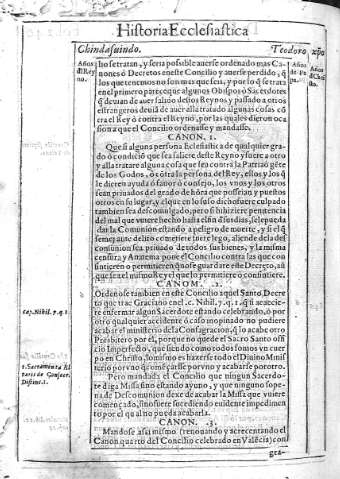 Historia Ecclesiastica
Chindasuindo. Teodoro, xp̃o
Años
d̃l Rey
no.
Años
de Pa
pa.
Años
d̃ Chri
sto.
bo se tratan, y seria posible auerse ordenado mas Ca-
nones ó Decretos en este Concilio y auerse perdido, q̃
los que tenemos no son mas que seis, y por lo q̃ se trata
en el primero parece que algunos Obispos ó Sacerdotes
q̃ deuian de auer salido destos Reynos y passado a otros
estrangeros deuiã de auer alla tratado algunas cosas cõ
tra el Rey ó contra el Reyno, por las quales dieron oca
sion a que el Concilio ordenasse y mandasse.
CANON. 1.
Que si alguna persona Eclesiastica de qualquier gra-
do ò condiciõ que sea saliere deste Reyno y fuere a otro
y alla tratare alguna cosa que sea contra la Patria ó gẽte
de los Godos, ò cõtra la persona del Rey, ellos y los q̃
le dieren ayuda ó fauor ó consejo, los vnos y los otros
sean priuados del grado de hõra que possehian y puestos
otros en su lugar, y el que en lo suso dicho fuere culpado
tambien sea descomulgado, pero si hiziere penitencia
del mal que vuiere hecho hasta el fin d̃ sus dias, se le pueda
dar la Comunion estando a peligro de muerte, y si el q̃
semejante delito cometiere fuere lego, aliende dela des
comunion sea priuado de todos sus bienes, y la misma
censura y Anatema pone el Concilio contra los que con
sintieren o permitieren q̃ no se guarde este Decreto, aũ
que sean el mismo Rey el que lo permitiere ò consintiere.
CANOM. .2.
Ordenose tambien en este Concilio aquel Santo Decre
to que trae Graciano en el c. Nihil. 7. q. 1. q̃ si acaecie-
re enfermar algun Sacerdote estando celebrando, ó por
otro qualquier accidente ò caso inopinado no pudiere
acabar el ministerio de la Consagracion, q̃ lo acabe otro
Presbitero por el, porque no quede el Sacro Santo offi
cio Imperfecto, que siendo como todos somos vn cuer
po en Christo, lo mismo es hazerse todo el Diuino Minist
terio por vno q̃ començarse por vno y acabarse por otro.
Pero manda en el Concilio que ningun Sacerdo-
te diga Missa sino estando ayuno, y que ninguno so pe-
na de Descomunion dexe de acabar la Missa que vuiere
començado, sino fuere sucediendo euidente impedimen
to por el qual no pueda acabarla.
CANON. .3.
Mandose assi mismo (renouando y acrecentando el
Canon quarto del Concilio celebrado en Valẽcia) con
gra-
cap. Nihil. 7. q. 1.
1. Sacramenta Al
taris de Consecr.
Distinc. 1.